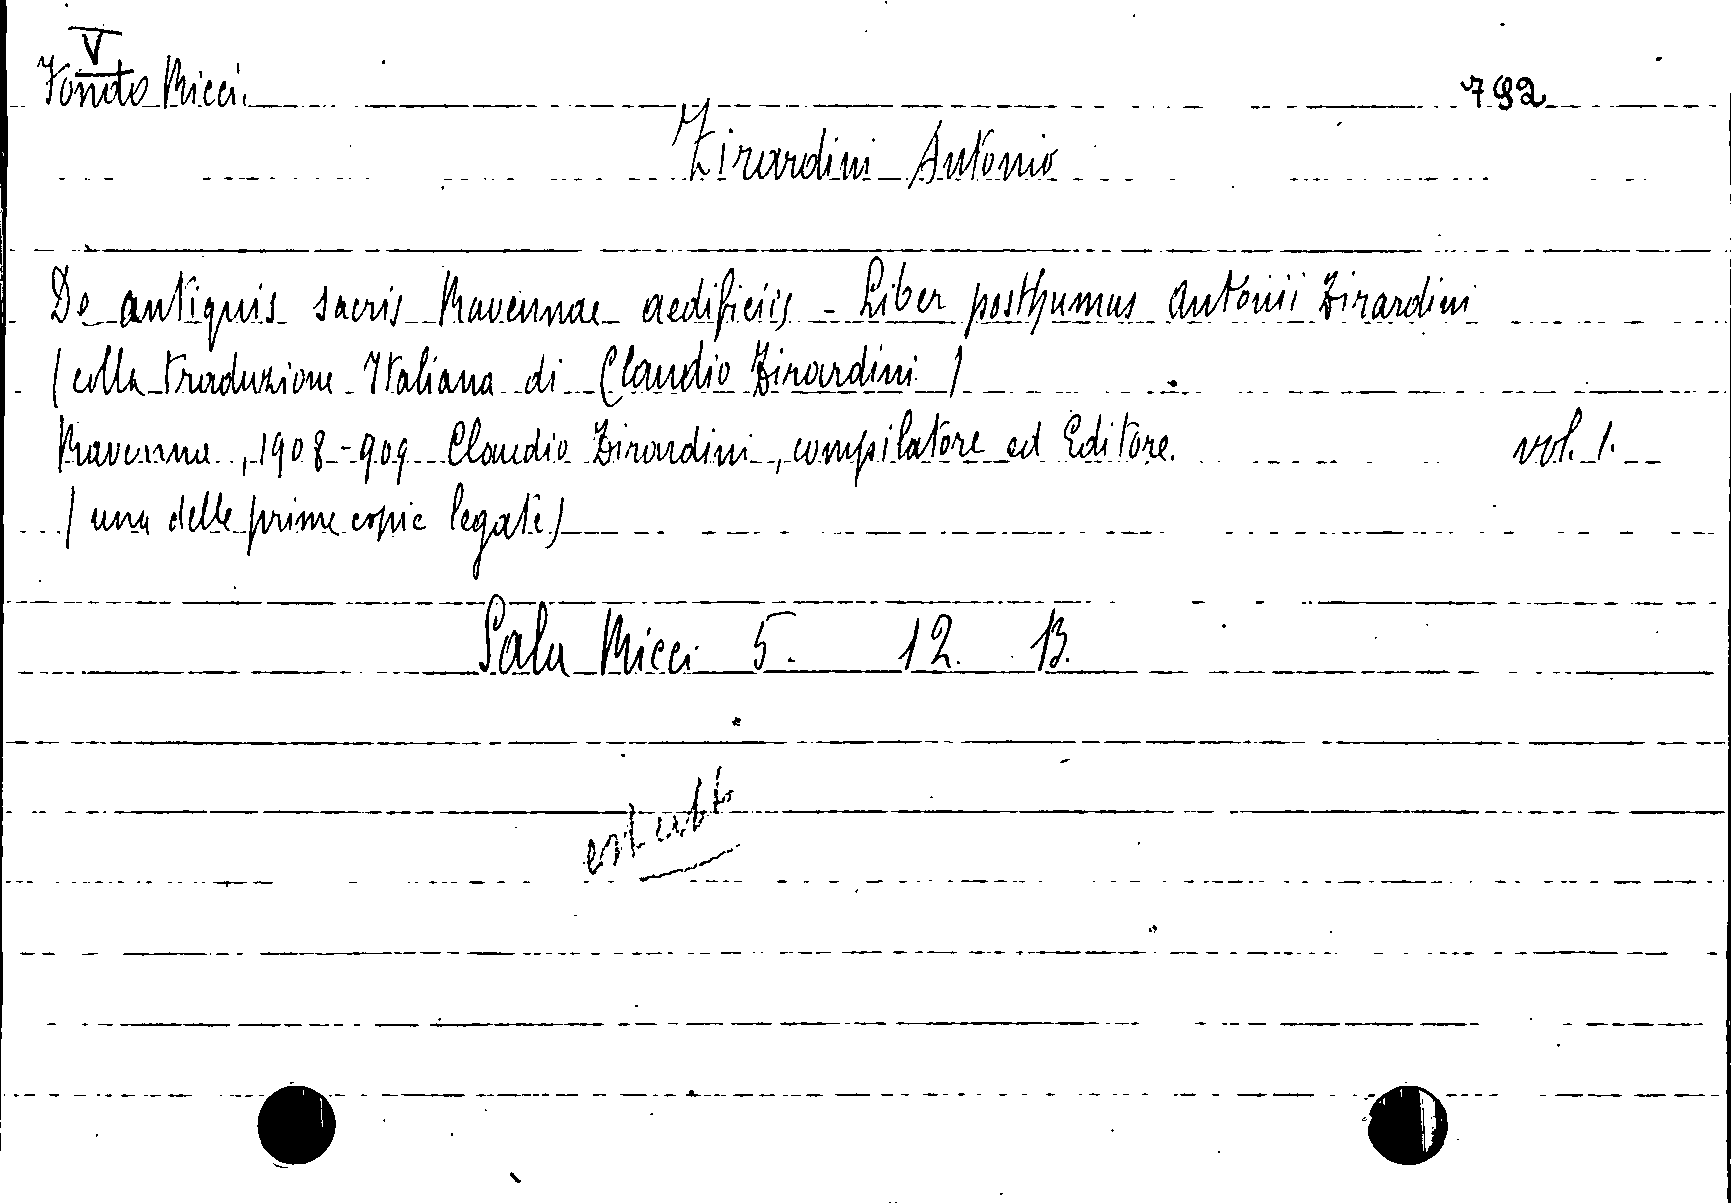 V
Fondo Ricci.
792
Zirardini Antonio
De antiquis sacris Ravennae aedificiis - Liber posthumus Antonii Zirardini
(colla traduzione Italiana di Claudio Zirardini)
Ravenna, 1908-909 Claudio Zirardini, compilatore ed Editore. vol. 1.
(una delle prime copie legate)
Sala Ricci 5. 12. B.